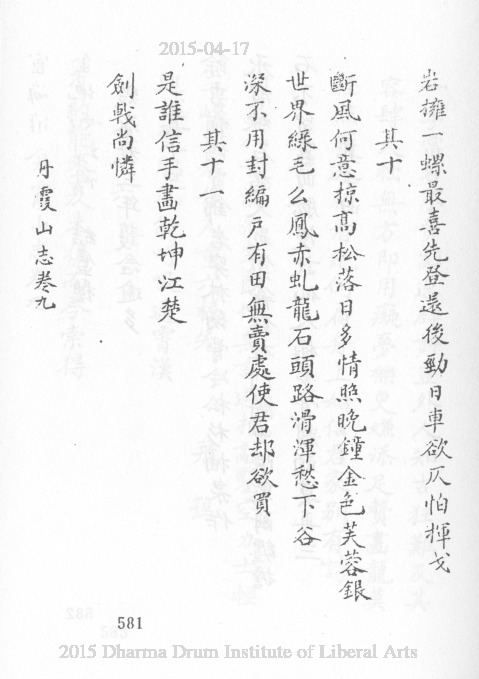 2015-04-17
岩擁一螺最喜先登還後勁日車欲仄怕揮戈
其十
斷風何意掠高松落日多情照晚鐘金色芙蓉銀
世界綠毛么鳳赤虬龍石頭路滑渾愁下谷
深不用封編戸有田無賣處使君却欲買
其十一
是誰信手畫乾坤江楚
劍戟尚憐
丹霞山志卷九
581
2015 Dharma Drum Institute of Liberal Arts